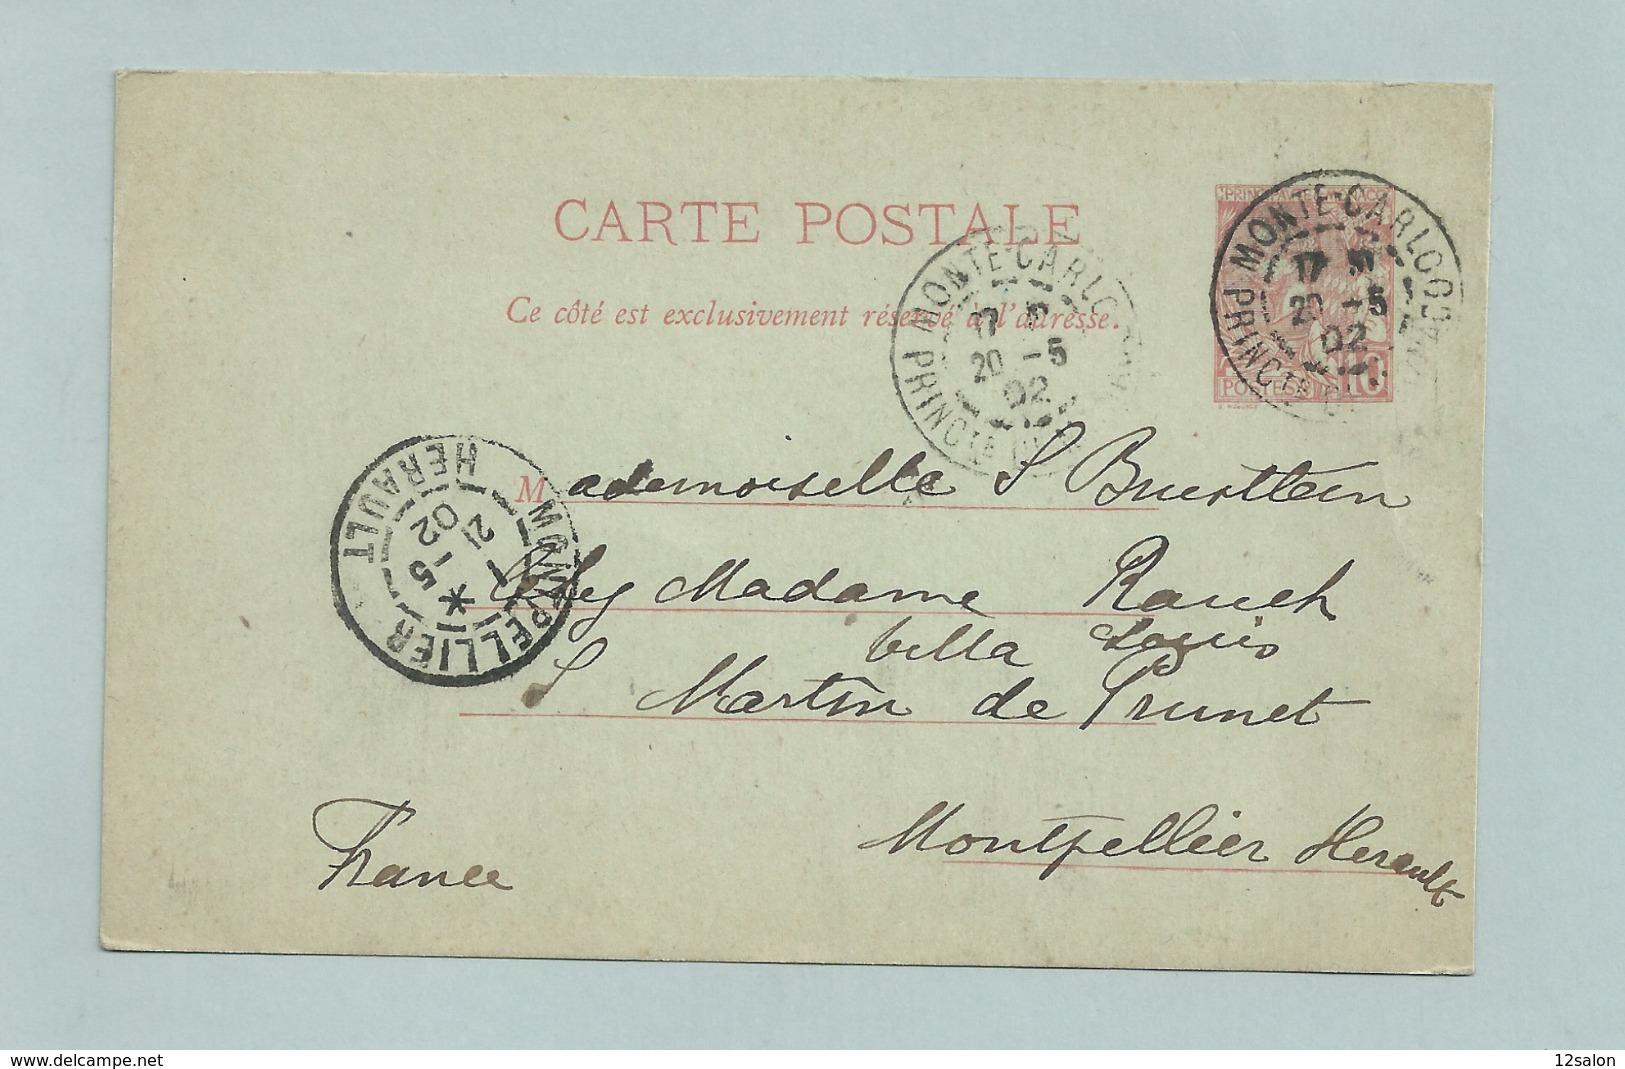 CARTE POSTALE
Ce côté est exclusivement réservé à l'adresse.
PRINCIPAUTÉ DE MONACO
POSTES 10
MONTE-CARLO
PRINCTÉ
20 -5
02
MONTE-CARLO
PRINCTÉ
20 -5
02
MONTPELLIER
HERAULT
21 -5
02
Mademoiselle S
Chez Madame Rauch
Villa Louis
S Martin de Prunet
Montpellier Herault
France
www.delcampe.net
12salon